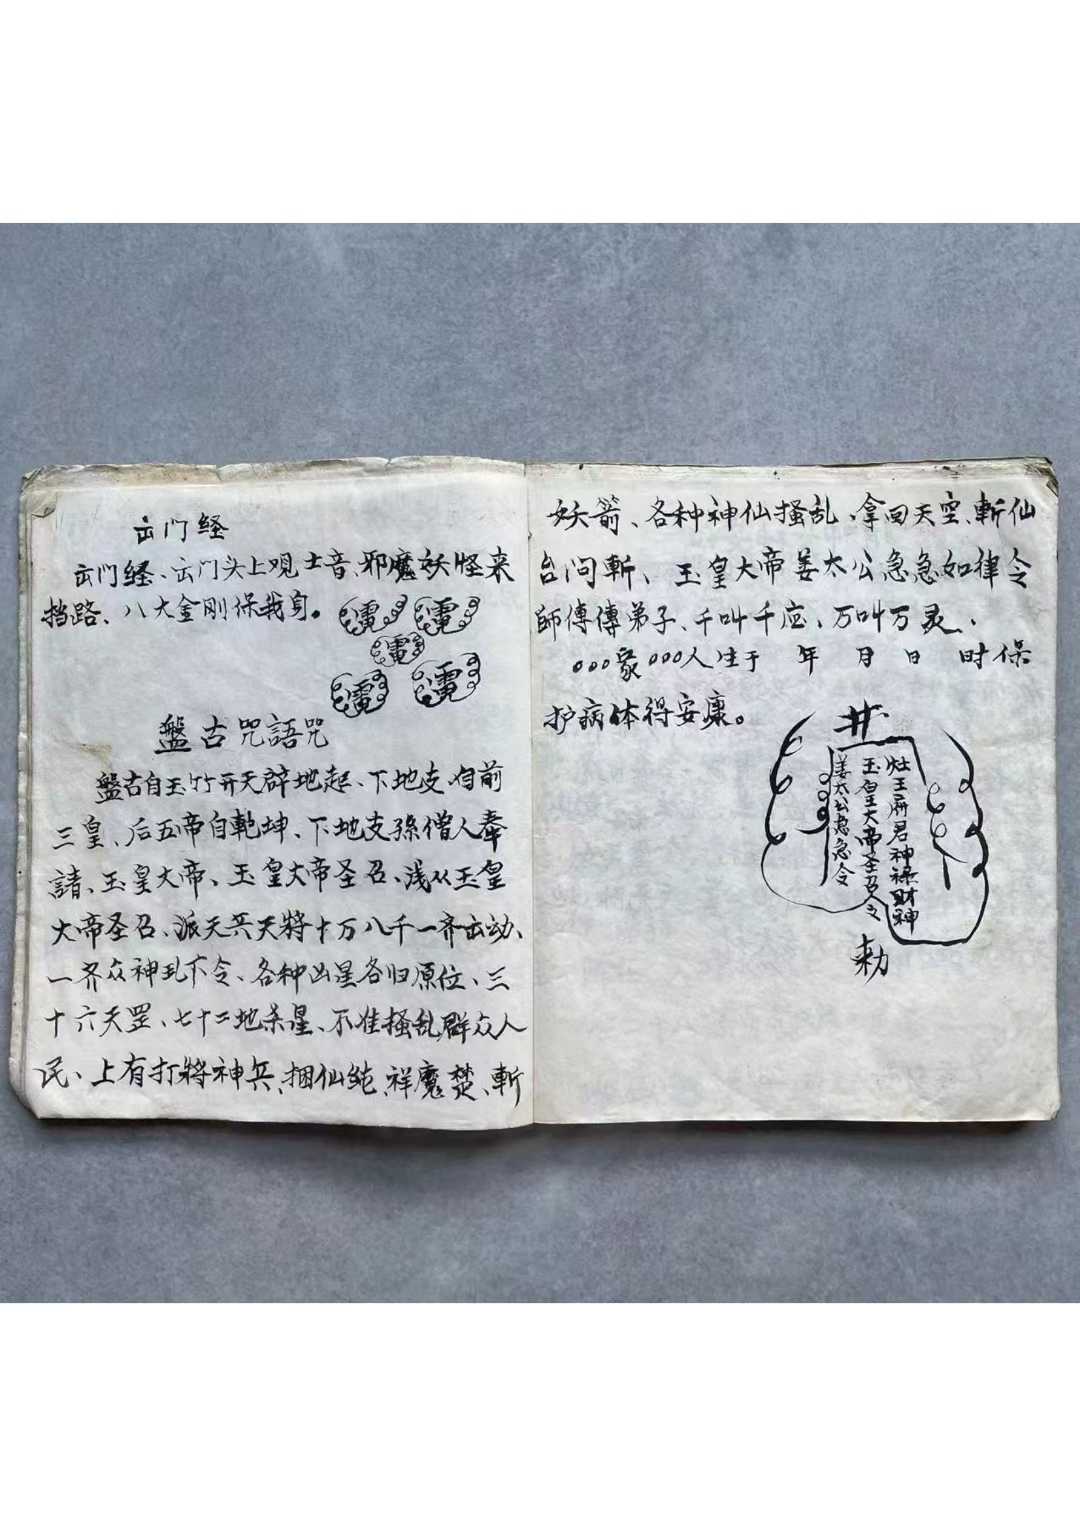 出门経
出门経、出门头上观士音、邪魔妖怪来
挡路、八大金刚保我身。
電 電
電
電 電
盤古咒語咒
盤古自玉竹开天辟地起、下地支、自前
三皇、后五帝自乾坤、下地支孫僧人奉
請、玉皇大帝、玉皇大帝圣召、浅从玉皇
大帝圣召、派天兵天将十万八千一齐出动、
一齐众神到下令、各种凶星各归原位、三
十六天罡、七十二地杀星、不准搔乱群众人
民、上有打将神兵、捆仙绳、祥魔焚、斬
妖箭、各种神仙搔乱、拿回天空、斬仙
台问斬、玉皇大帝姜太公急急如律令
師傅傅弟子、千叫千应、万叫万灵、
○○○家○○○人生于 年 月 日 时保
护病体得安康。
井
灶王府君神禄财神
玉皇大帝圣召令
姜太公急急令
勅